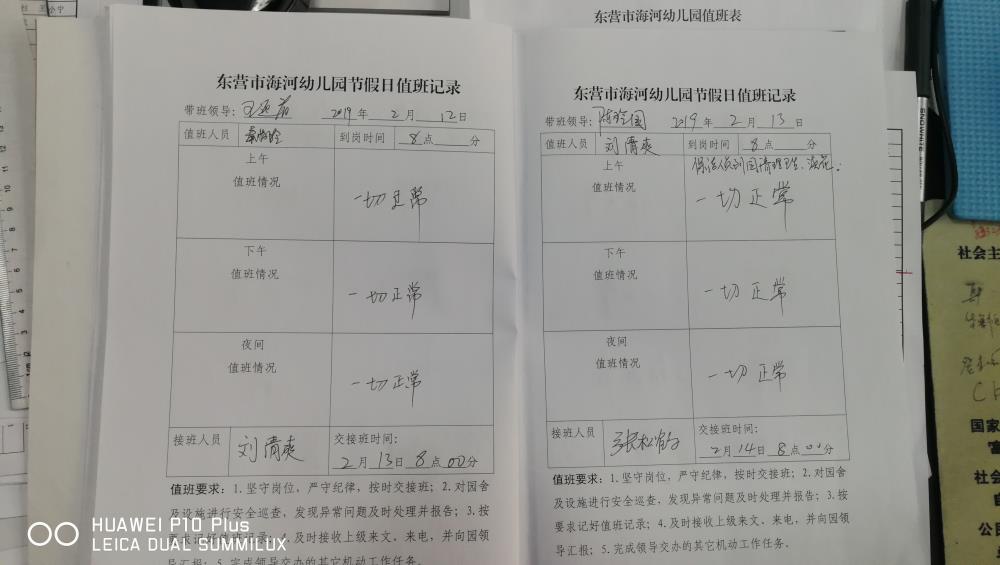 东营市海河幼儿园值班表
东营市海河幼儿园节假日值班记录
带班领导： 2019年 2月 12日
值班人员 到岗时间 8点 分
上午
值班情况
一切正常
下午
值班情况
一切正常
夜间
值班情况
一切正常
接班人员 刘清爽 交接班时间：
2月13日8点00分
值班要求：1.坚守岗位，严守纪律，按时交接班；2.对园舍
及设施进行安全巡查，发现异常问题及时处理并报告；3.按
要求记好值班记录；4.及时接收上级来文、来电，并向园领
导汇报；5.完成领导交办的其它机动工作任务。
东营市海河幼儿园节假日值班记录
带班领导： 2019年 2月 13日
值班人员 刘清爽 到岗时间 8点 分
上午
值班情况
一切正常
下午
值班情况
一切正常
夜间
值班情况
一切正常
接班人员 交接班时间：
2月14日8点00分
值班要求：1.坚守岗位，严守纪律，按时交接班；2.对园舍
及设施进行安全巡查，发现异常问题及时处理并报告；3.按
要求记好值班记录；4.及时接收上级来文、来电，并向园领
导汇报；5.完成领导交办的其它机动工作任务。
社会主
国家
社会
公民
HUAWEI P10 Plus
LEICA DUAL SUMMILUX